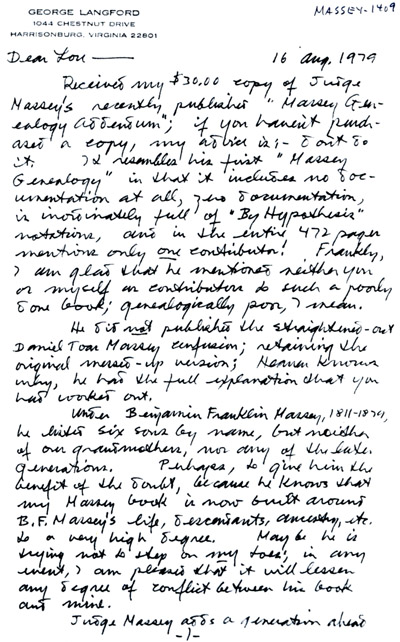 GEORGE LANGFORD
1044 CHESTNUT DRIVE
HARRISONBURG, VIRGINIA 22801
MASSEY-1409
Dear Lou —
16 aug, 1979
Received my $30.00 copy of Judge
Massey's recently published "Massey Gen-
ealogy Addendum"; if you haven't purch-
ased a copy, my advice is:- don't do
it. It resembles his first "Massey
Genealogy" in that it includes no doc-
umentation at all, zero documentation,
is inordinately full of "By Hypothesis"
notations, and in the entire 472 pages
mentions only one contributor! Frankly,
I am glad that he mentioned neither you
or myself as contributors to such a poorly
done book; genealogically poor, I mean.
He did not publish the straightened-out
Daniel Toan Massey confusion; retaining the
original messed-up version; Heaven knows
why, he had the full explanation that you
had worked out.
Under Benjamin Franklin Massey, 1811-1879,
he listed six sons by name, but neither
of our grandmothers, nor any of the late
generations. Perhaps, to give him the
benefit of the doubt, because he knows that
my Massey book is now built around
B.F. Massey's life, descendants, ancestry, etc.
to a very high degree. May be he is
trying not to step on my toes; in any
event, I am pleased that it will lessen
any degree of conflict between his book
and mine.
Judge Massey adds a generation ahead
-1-